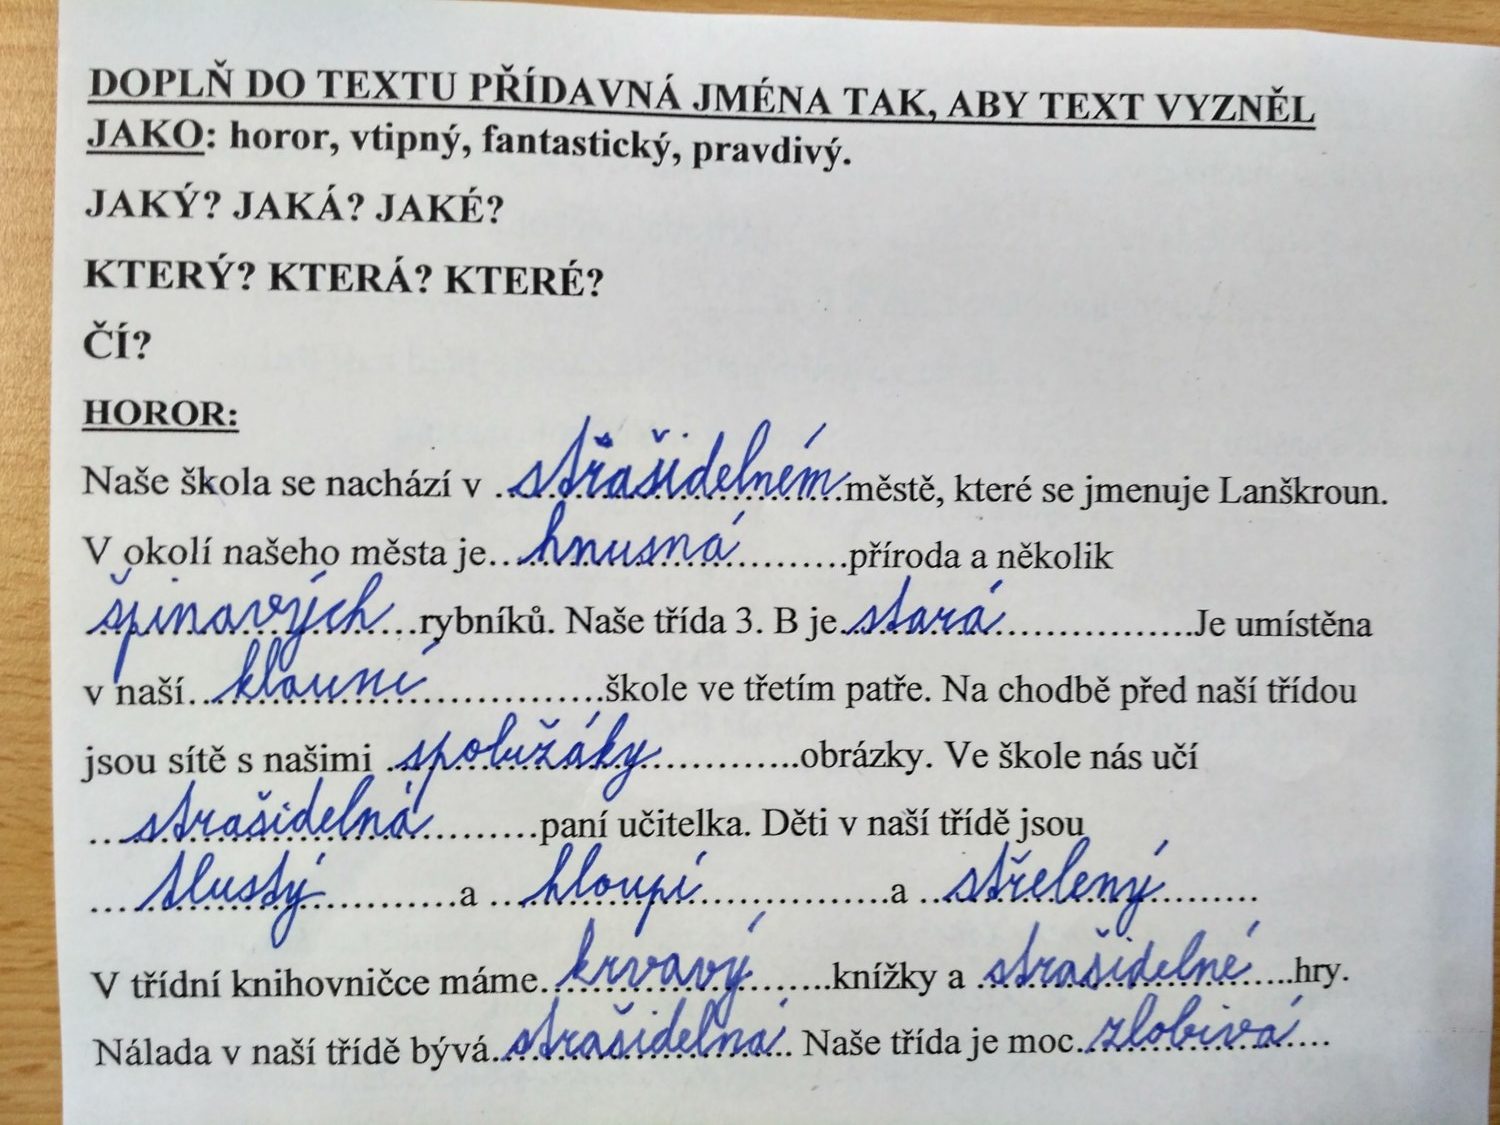 DOPLŇ DO TEXTU PŘÍDAVNÁ JMÉNA TAK, ABY TEXT VYZNĚL
JAKO: horor, vtipný, fantastický, pravdivý.
JAKÝ? JAKÁ? JAKÉ?
KTERÝ? KTERÁ? KTERÉ?
ČÍ?
HOROR:
Naše škola se nachází v střašidelném městě, které se jmenuje Lanškroun.
V okolí našeho města je hnusná příroda a několik
špinavých rybníků. Naše třída 3. B je stará Je umístěna
v naší klauní škole ve třetím patře. Na chodbě před naší třídou
jsou sítě s našimi obrázky. Ve škole nás učí
strašidelná paní učitelka. Děti v naší třídě jsou
tlustý a hloupí a střelený
V třídní knihovničce máme krvavý knížky a strašidelné hry.
Nálada v naší třídě bývá strašidelná. Naše třída je moc zlobivá